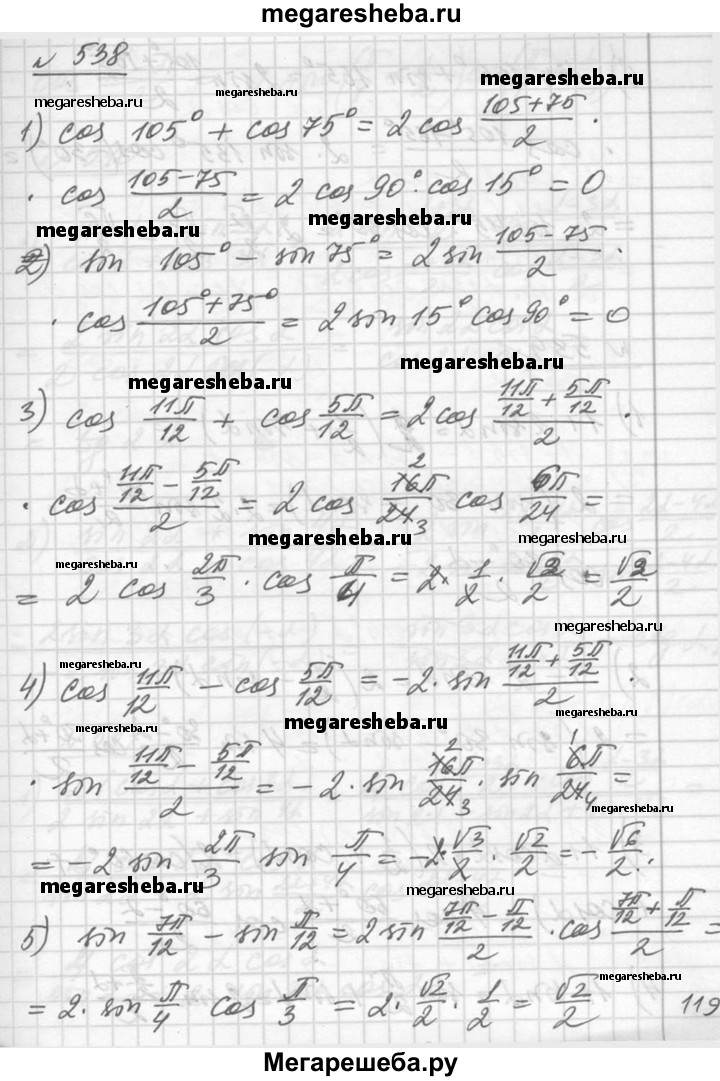 megaresheba.ru
№ 538
megaresheba.ru megaresheba.ru megaresheba.ru
1) cos 105° + cos 75° = 2 cos (105+75)/2 ·
· cos (105-75)/2 = 2 cos 90° · cos 15° = 0
megaresheba.ru megaresheba.ru
2) sin 105° - sin 75° = 2 sin (105-75)/2 ·
· cos (105°+75°)/2 = 2 sin 15° cos 90° = 0
megaresheba.ru megaresheba.ru
3) cos 11π/12 + cos 5π/12 = 2 cos (11π/12 + 5π/12)/2 ·
· cos (11π/12 - 5π/12)/2 = 2 cos 16π/24 cos 6π/24 =
megaresheba.ru megaresheba.ru megaresheba.ru
= 2 cos 2π/3 · cos π/4 = 2 · 1/2 · √2/2 = √2/2
megaresheba.ru megaresheba.ru
4) cos 11π/12 - cos 5π/12 = -2 · sin (11π/12 + 5π/12)/2 ·
megaresheba.ru megaresheba.ru
· sin (11π/12 - 5π/12)/2 = -2 · sin 16π/24 · sin 6π/24 =
megaresheba.ru
= -2 sin 2π/3 sin π/4 = -2 · √3/2 · √2/2 = -√6/2.
megaresheba.ru megaresheba.ru
5) sin 7π/12 - sin π/12 = 2 sin (7π/12 - π/12)/2 · cos (7π/12 + π/12)/2 =
megaresheba.ru
= 2 · sin π/4 cos π/3 = 2 · √2/2 · 1/2 = √2/2
119
Мегарешеба.ру